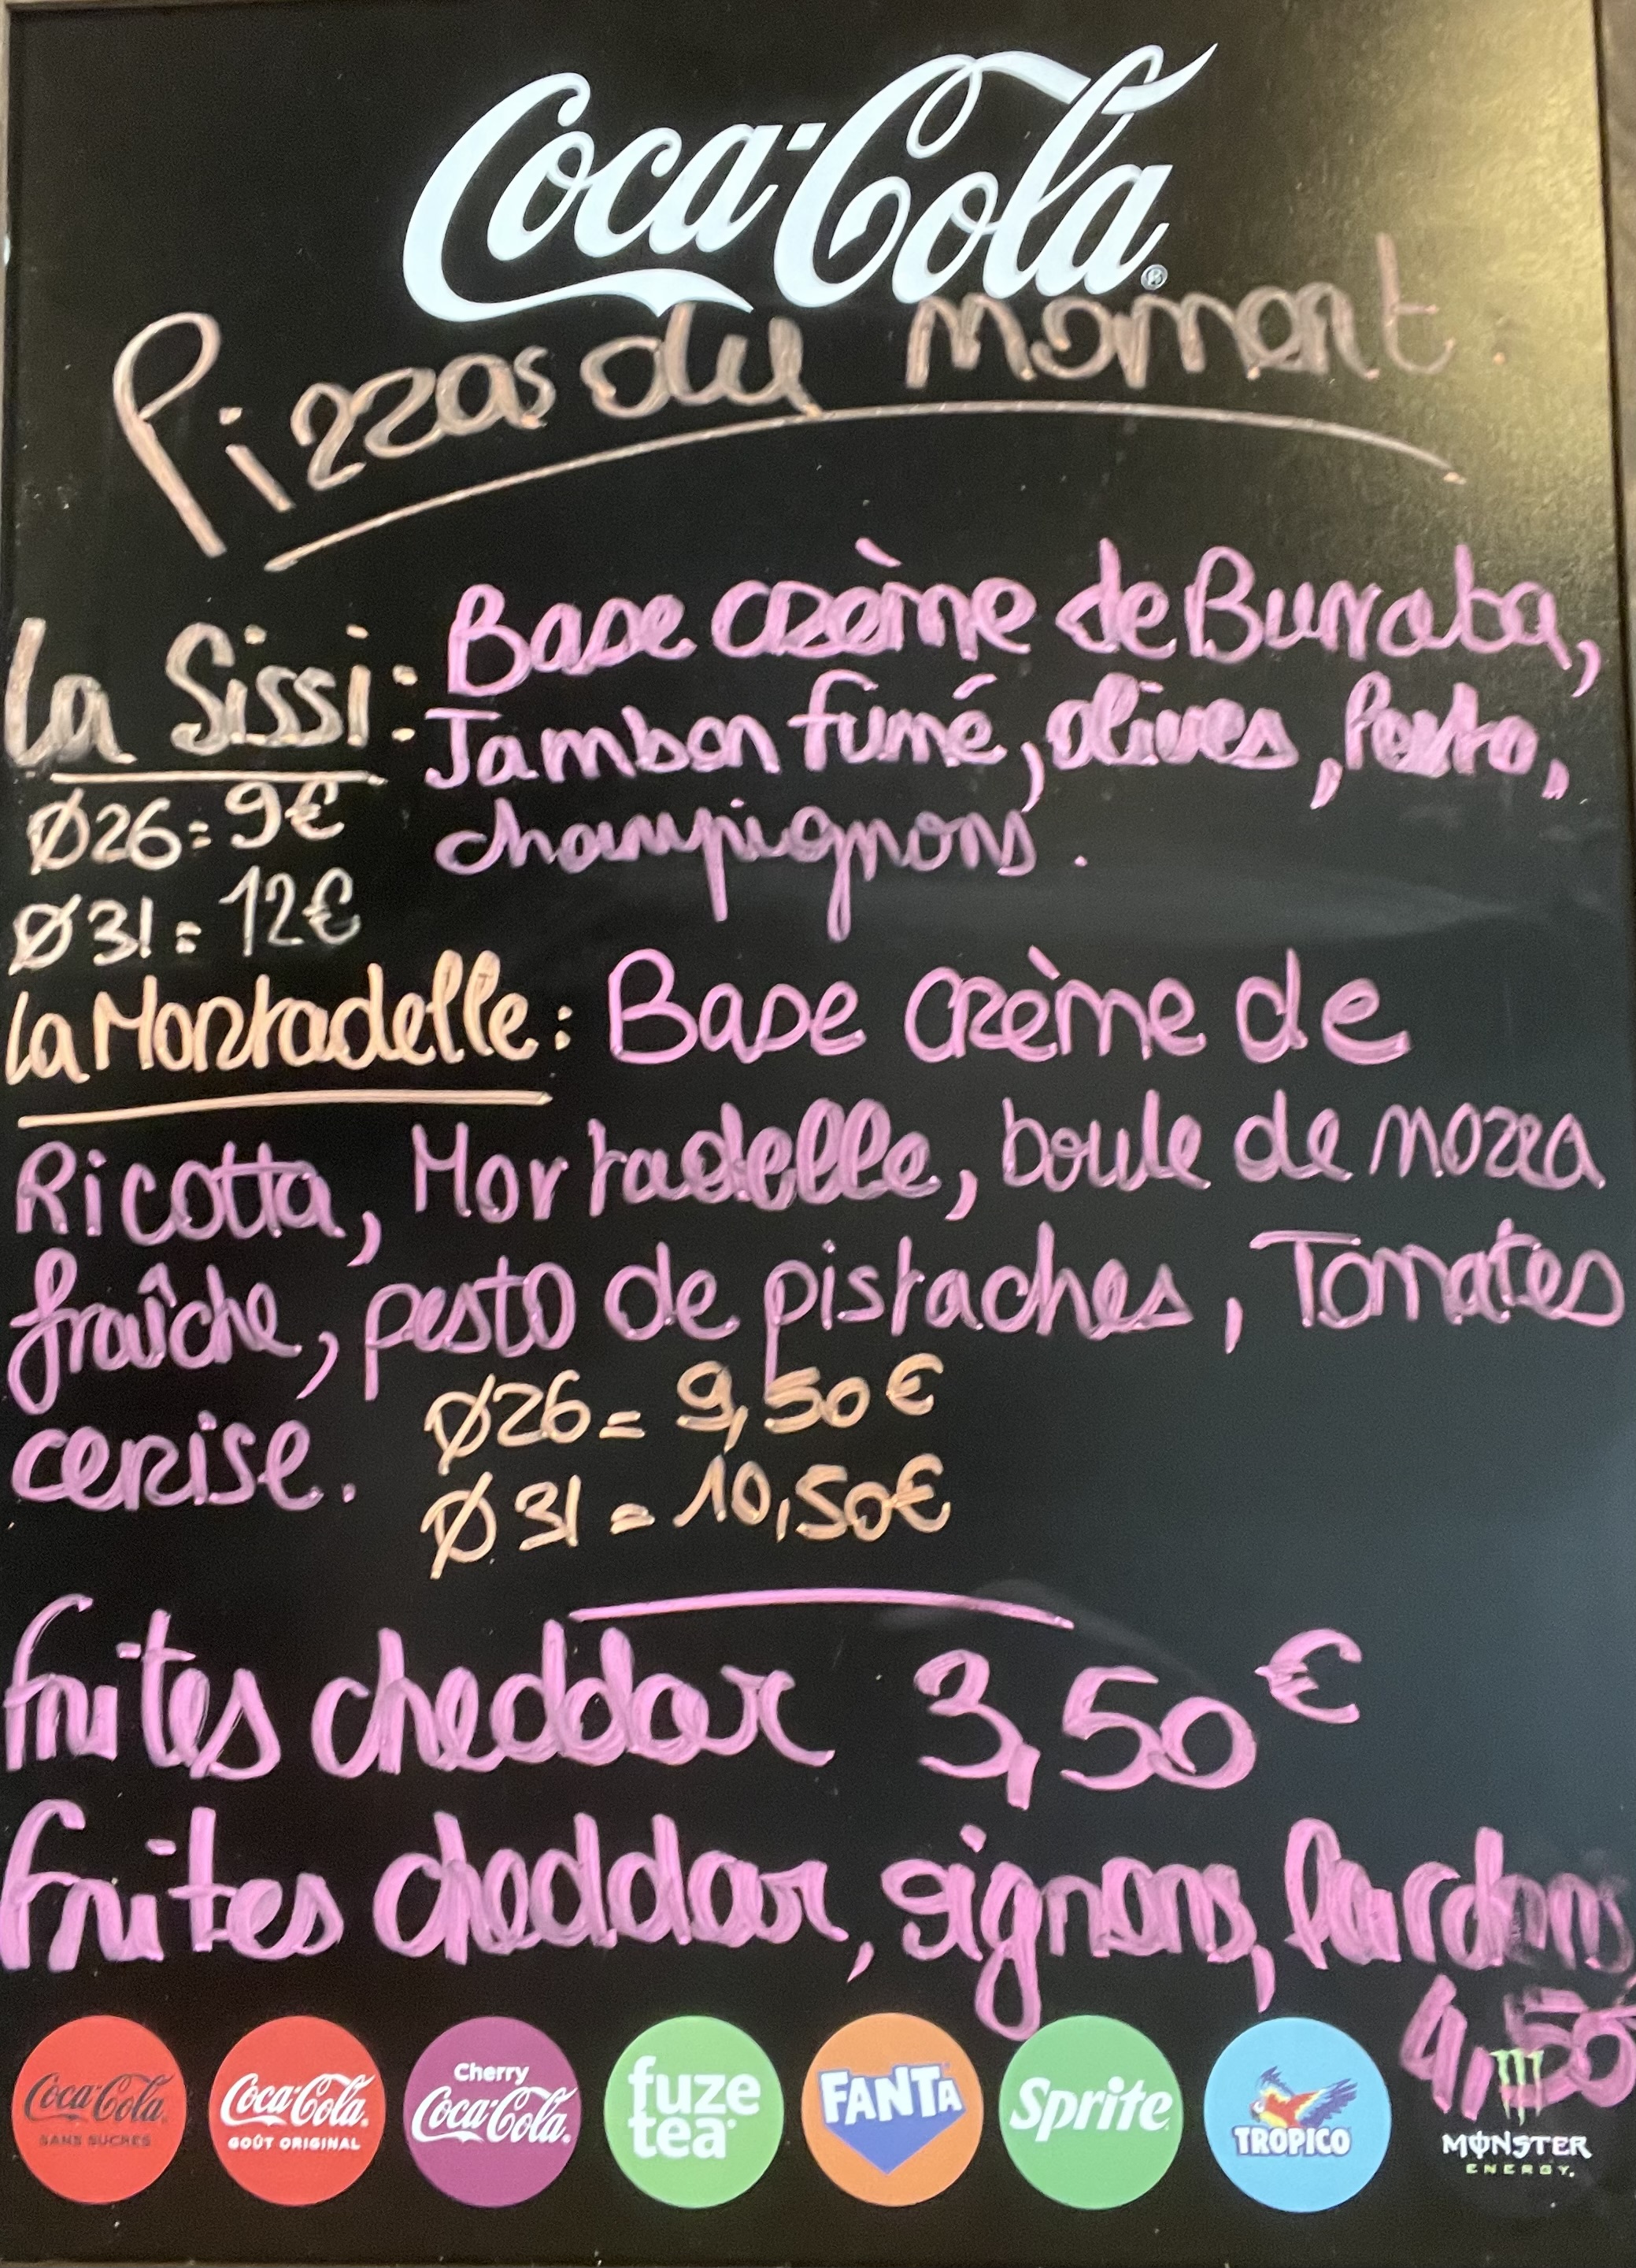 Coca-Cola®
Pizzas du moment
La Sissi : Base crème de Burrata,
Jambon fumé, olives, Pesto,
champignons.
Ø26 = 9€
Ø31 = 12€
La Mortadelle : Base crème de
Ricotta, Mortadelle, boule de mozza
fraîche, pesto de pistaches, Tomates
cerise.
Ø26 = 9,50€
Ø31 = 10,50€
frites cheddar 3,50€
frites cheddar, oignons, lardons
4,50
Coca-Cola SANS SUCRES
Coca-Cola GOÛT ORIGINAL
Cherry Coca-Cola
fuze tea
FANTA
Sprite
TROPICO
MONSTER ENERGY